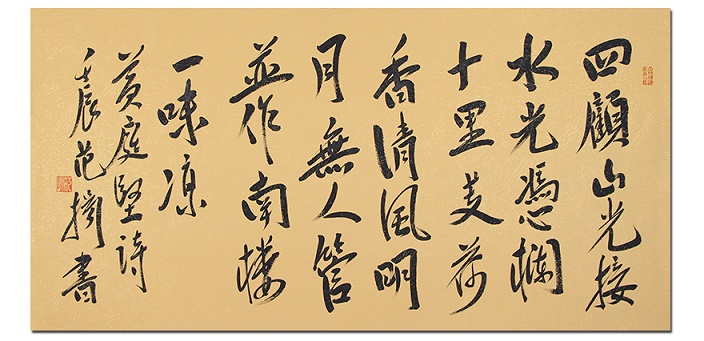 四顧山光接
水光憑欄
十里芰荷
香清風明
月無人管
並作南楼
一味凉
黄庭堅詩
壬辰范書